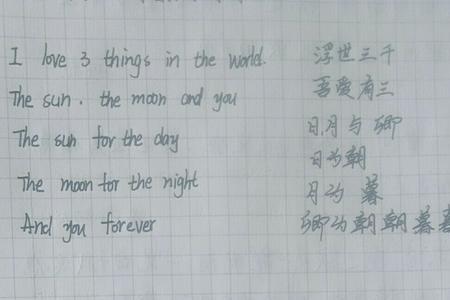 I love 3 things in the world.
浮世三千
The sun. the moon and you
吾爱有三
The sun for the day
日,月与卿
日为朝
The moon for the night
月为暮
And you forever
卿为朝朝暮暮